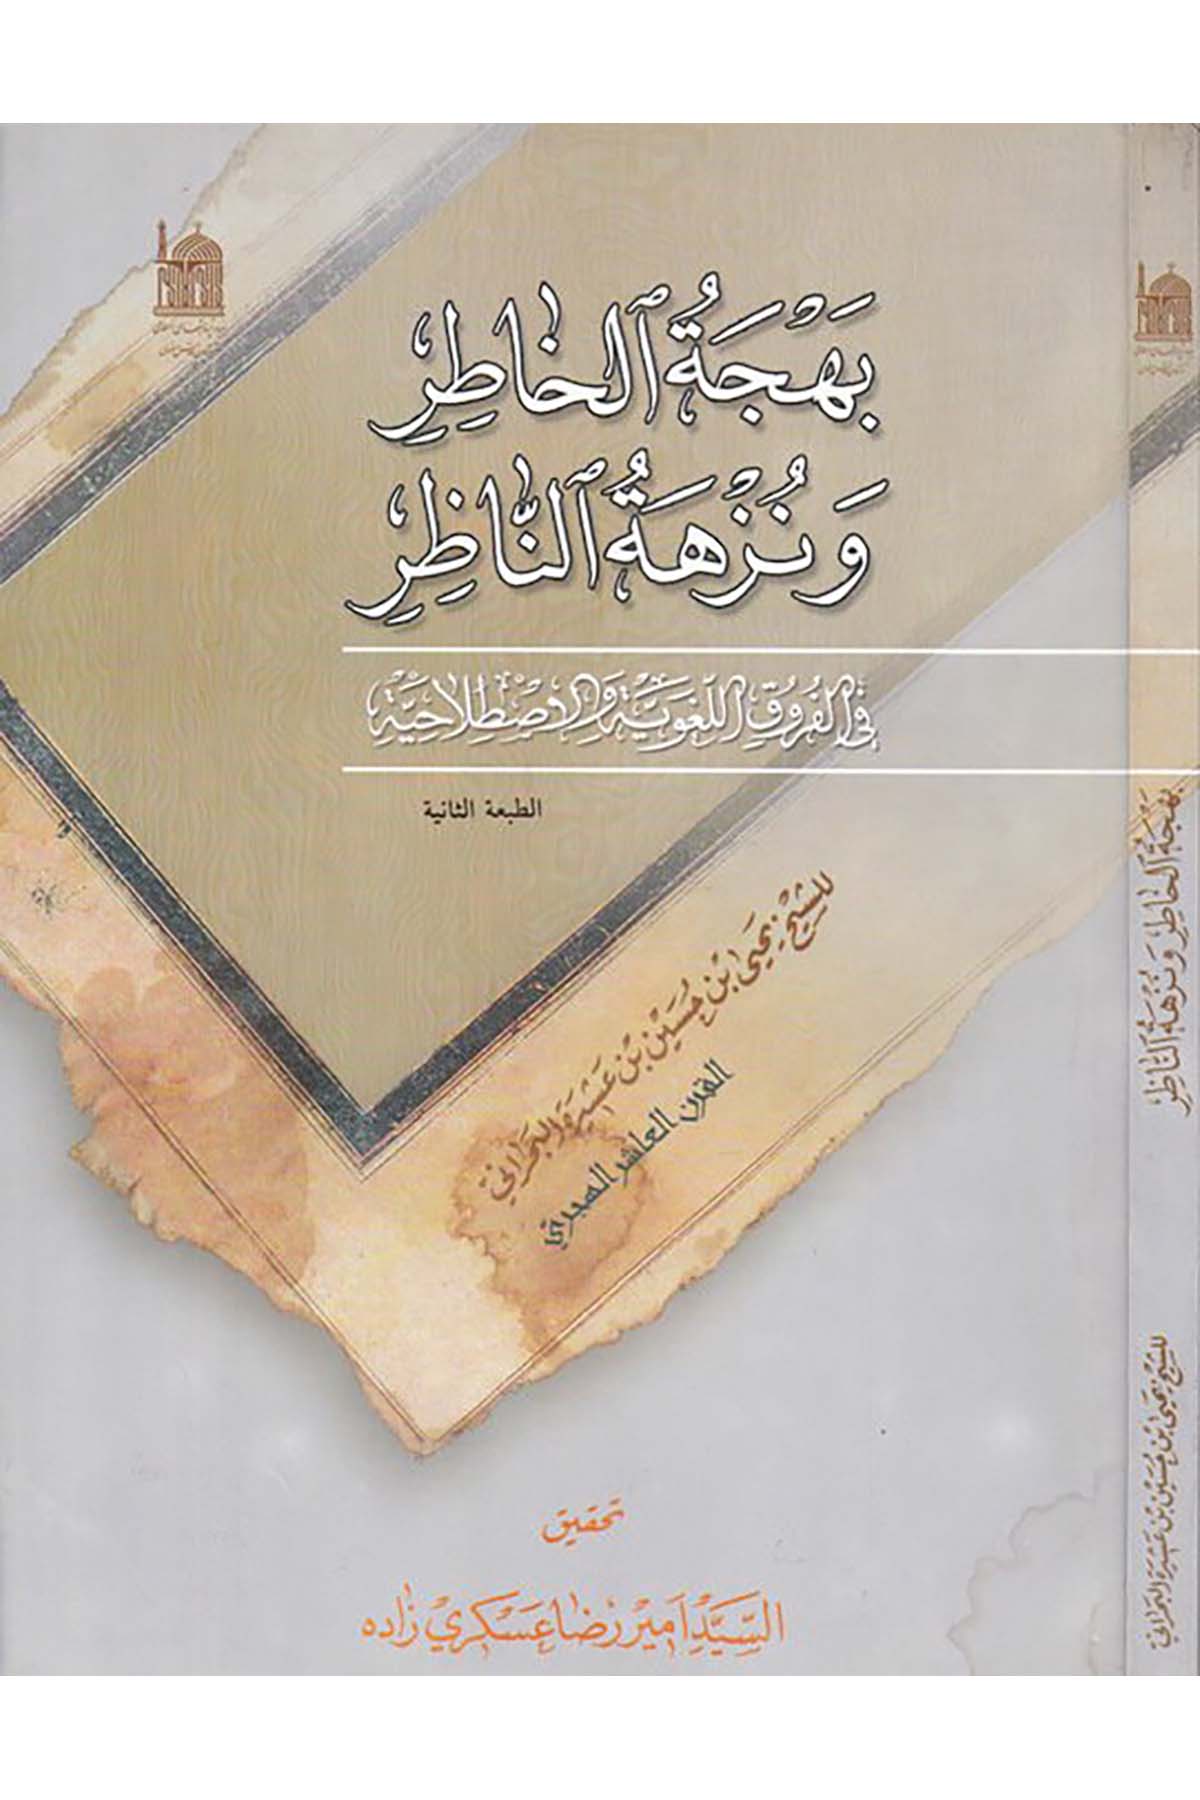 بَهْجَةُ ٱلخاطِرِ
وَنُزْهَةُ ٱلنّاظِرِ
في ٱلفُرُوقِ اللّغَويَّةِ وَالاصْطِلاحِيَّةِ
الطبعة الثانية
للشيخ يحيى ابْن حُسَيْن بْن عَشيرَة البَحرَاني
القرن العاشر الهجري
تحقيق
السيَّد امير رضا عسكري زاده
بَهْجَةُ ٱلخاطِرِ وَنُزْهَةُ ٱلنّاظِرِ
للشيخ يحيى ابْن حُسَيْن بْن عَشيرَة البَحرَاني